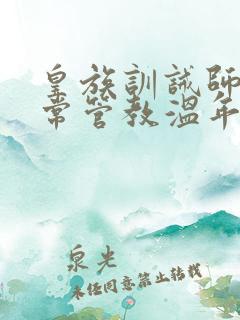 皇族訓誡師
常管教溫年
泉光
未經同意禁止轉載